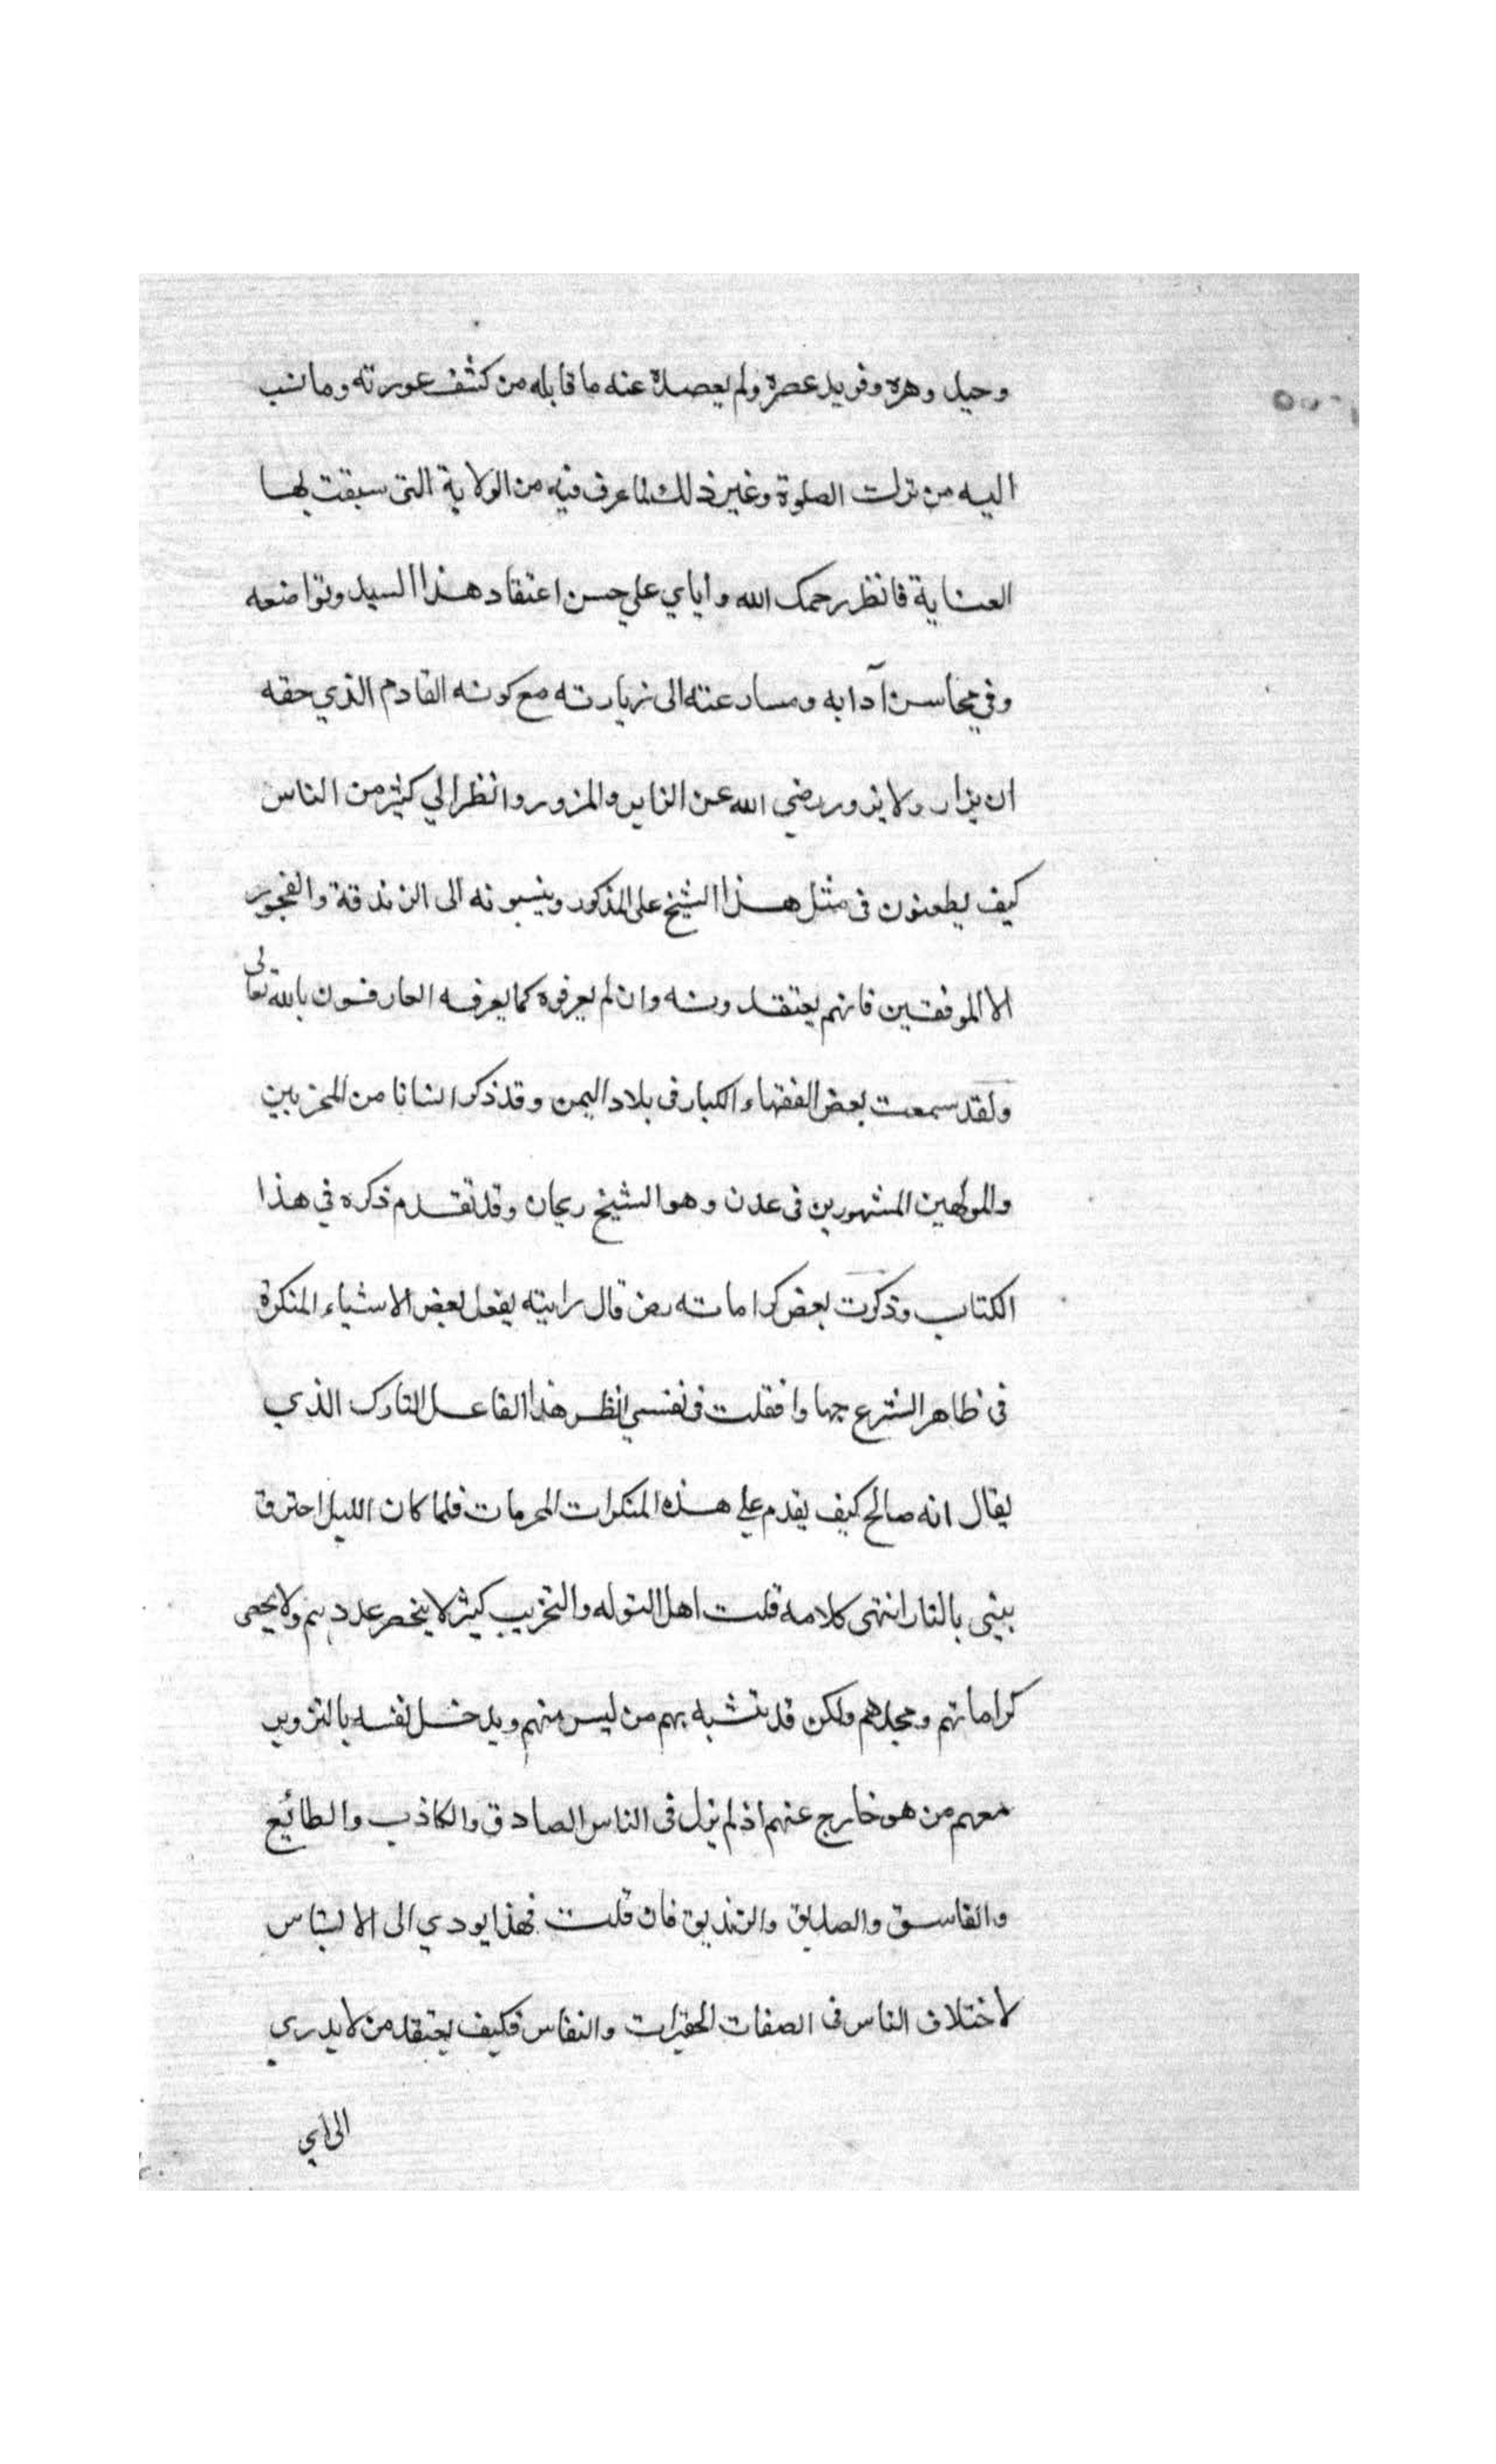 وحيد دهره وفريد عصره ولم يصده عنه ما قابله من كشف عورته وما نسب
اليه من ترك الصلوة وغير ذلك لما عرف فيه من الولاية التى سبقت لها
العناية فانظر رحمك الله واياي علي حسن اعتقاد هذا السيد وتواضعه
وفي محاسن آدابه ومسارعته الى زيارته مع كونه القادم الذي حقه
ان يزار ولا يزور رضي الله عن الزاير والمزور وانظر الي كثير من الناس
كيف يطعنون فى مثل هذا الشيخ على المذكور وينسبونه الى الزندقة والفجور
الا الموفقين فانهم يعتقدونه وان لم يعرفوه كما يعرفه العارفون بالله تعالى
ولقد سمعت بعض الفقهاء الكبار فى بلاد اليمن وقد ذكر انسانا من المخربين
والمولهين المشهورين فى عدن وهو الشيخ ريحان وقد تقدم ذكره في هذا
الكتاب وذكرت بعض كراماته رضى قال رايته يفعل بعض الاشياء المنكرة
فى ظاهر الشرع جهارا فقلت فى نفسي انظر هذا الفاعل التارك الذي
يقال انه صالح كيف يقدم علي هذه المنكرات المحرمات فلما كان الليل احترق
بيتى بالنار انتهى كلامه قلت اهل التوله والتخريب كثير لا ينحصر عددهم ولا يحصى
كراماتهم ومجدهم ولكن قد يتشبه بهم من ليس منهم ويدخل نفسه بالتزوير
معهم من هو خارج عنهم اذ لم يزل فى الناس الصادق والكاذب والطائع
والفاسق والصديق والزنديق فان قلت فهذا يودي الى الالتباس
لاختلاف الناس فى الصفات الحقيرات والنفاس فكيف يعتقد من لا يدري
الى اي